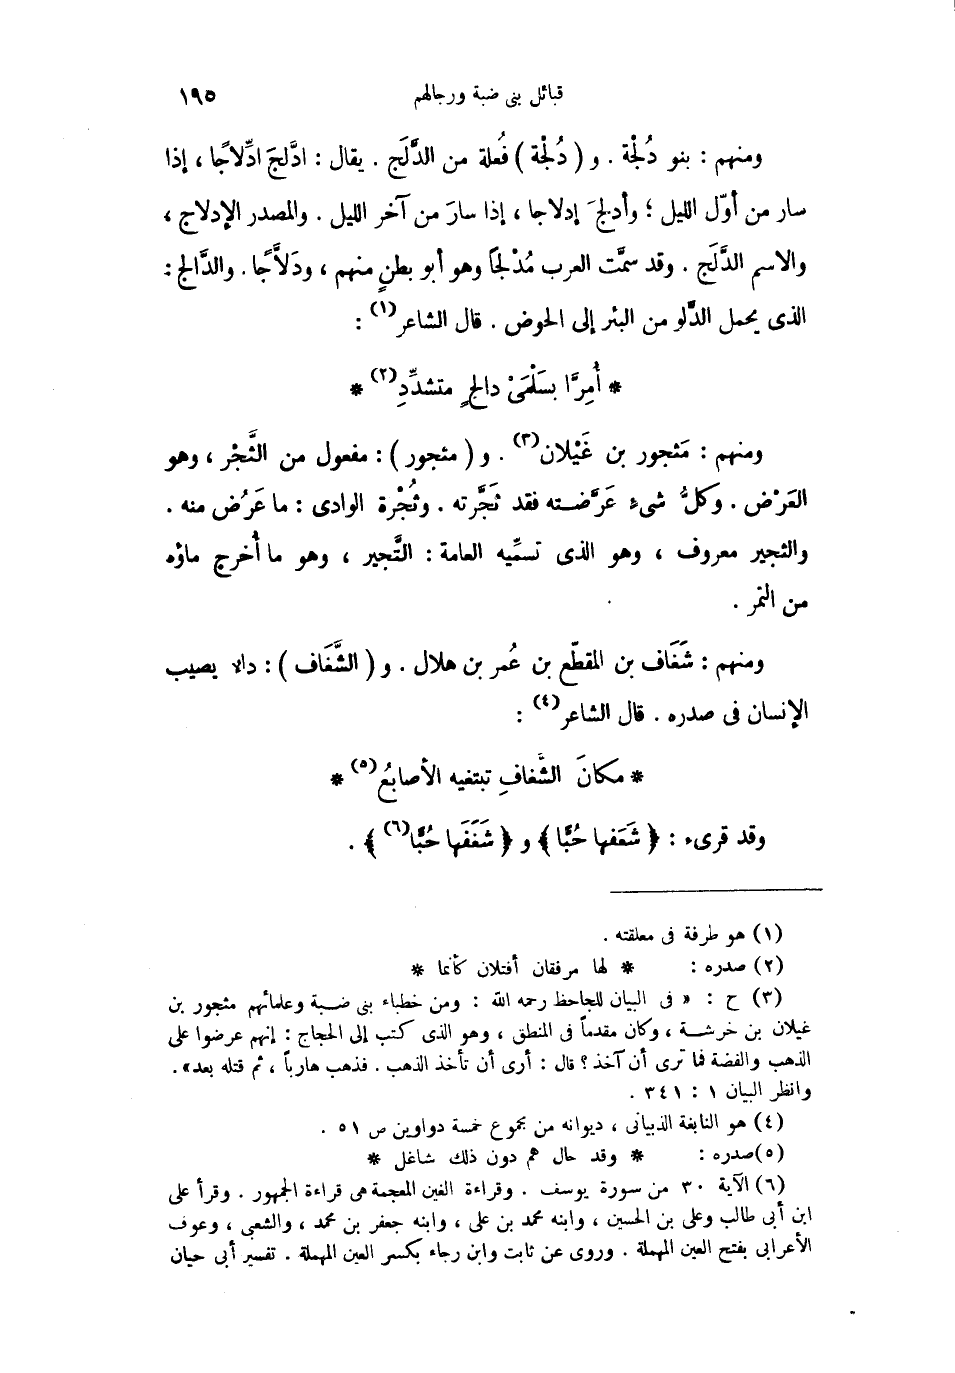 قبائل بنى ضبة ورجالهم ١٩٥
ومنهم : بنو دُلْجة . و ( دُلْجة ) فُعلة من الدَّلَج . يقال : ادَّلجَ ادِّلاجًا ، إذا
سار من أوّل الليل ؛ وأدلجَ إدلاجا ، إذا سارَ من آخر الليل . والمصدر الإدلاج ،
والاسم الدَّلَج . وقد سمَّت العرب مُدْلجًا وهو أبو بطنٍ منهم ، ودَلاَّجًا . والدَّالج :
الذى يحمل الدَّلو من البئر إلى الحوض . قال الشاعر(١) :
* أُمِرَّا بسَلْمَىْ دالجٍ متشدِّدِ(٢) *
ومنهم : مَثجور بن غَيْلان(٣) . و ( مثجور ) : مفعول من الثَّجْر ، وهو
العَرْض . وكلُّ شىءٍ عَرَّضته فقد ثَجَّرته . وثُجْرة الوادى : ما عَرُض منه .
والثجير معروف ، وهو الذى تسمِّيه العامة : التَّجير ، وهو ما أُخرج ماؤه
من التمر .
ومنهم : شَغَاف بن المقطّع بن عُمر بن هلال . و ( الشَّغَاف ) : داء يصيب
الإنسان فى صدره . قال الشاعر(٤) :
* مكانَ الشَّغافِ تبتغيه الأصابعُ(٥) *
وقد قرىء : ﴿ شَعَفها حُبًّا ﴾ و ﴿ شَغَفَها حُبًّا(٦) ﴾ .
(١) هو طرفة فى معلقته .
(٢) صدره : * لها مرفقان أفتلان كأنما *
(٣) ح : « فى البيان للجاحظ رحمه الله : ومن خطباء بنى ضبة وعلمائهم مثجور بن
غيلان بن خرشة ، وكان مقدماً فى المنطق ، وهو الذى كتب إلى الحجاج : إنهم عرضوا على
الذهب والفضة فما ترى أن آخذ ؟ قال : أرى أن تأخذ الذهب . فذهب هارباً ، ثم قتله بعد» .
وانظر البيان ١ : ٣٤١ .
(٤) هو النابغة الذبيانى ، ديوانه من مجموع خمسة دواوين ص ٥١ .
(٥) صدره : * وقد حال هم دون ذلك شاغل *
(٦) الآية ٣٠ من سورة يوسف . وقراءة الغين المعجمة هى قراءة الجمهور . وقرأ على
ابن أبى طالب وعلى بن الحسين ، وابنه محمد بن على ، وابنه جعفر بن محمد ، والشعبى ، وعوف
الأعرابى بفتح العين المهملة . وروى عن ثابت وابن رجاء بكسر العين المهملة . تفسير أبى حيان